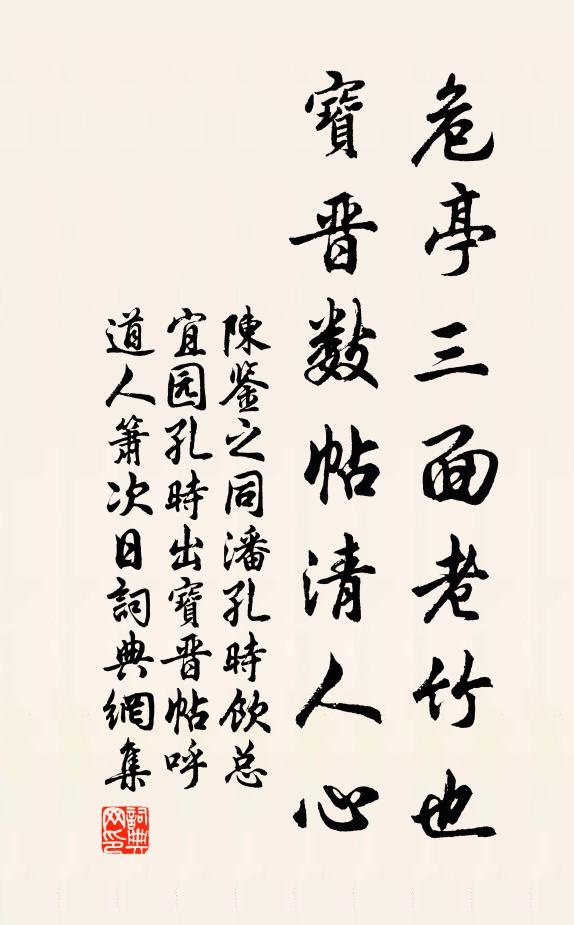 危亭三面老竹也
寶晋數帖清人心
陳鉴之同潘孔時飲总
宜园孔時出寶晋帖呼
道人簫次日詞典網集
詞典网印